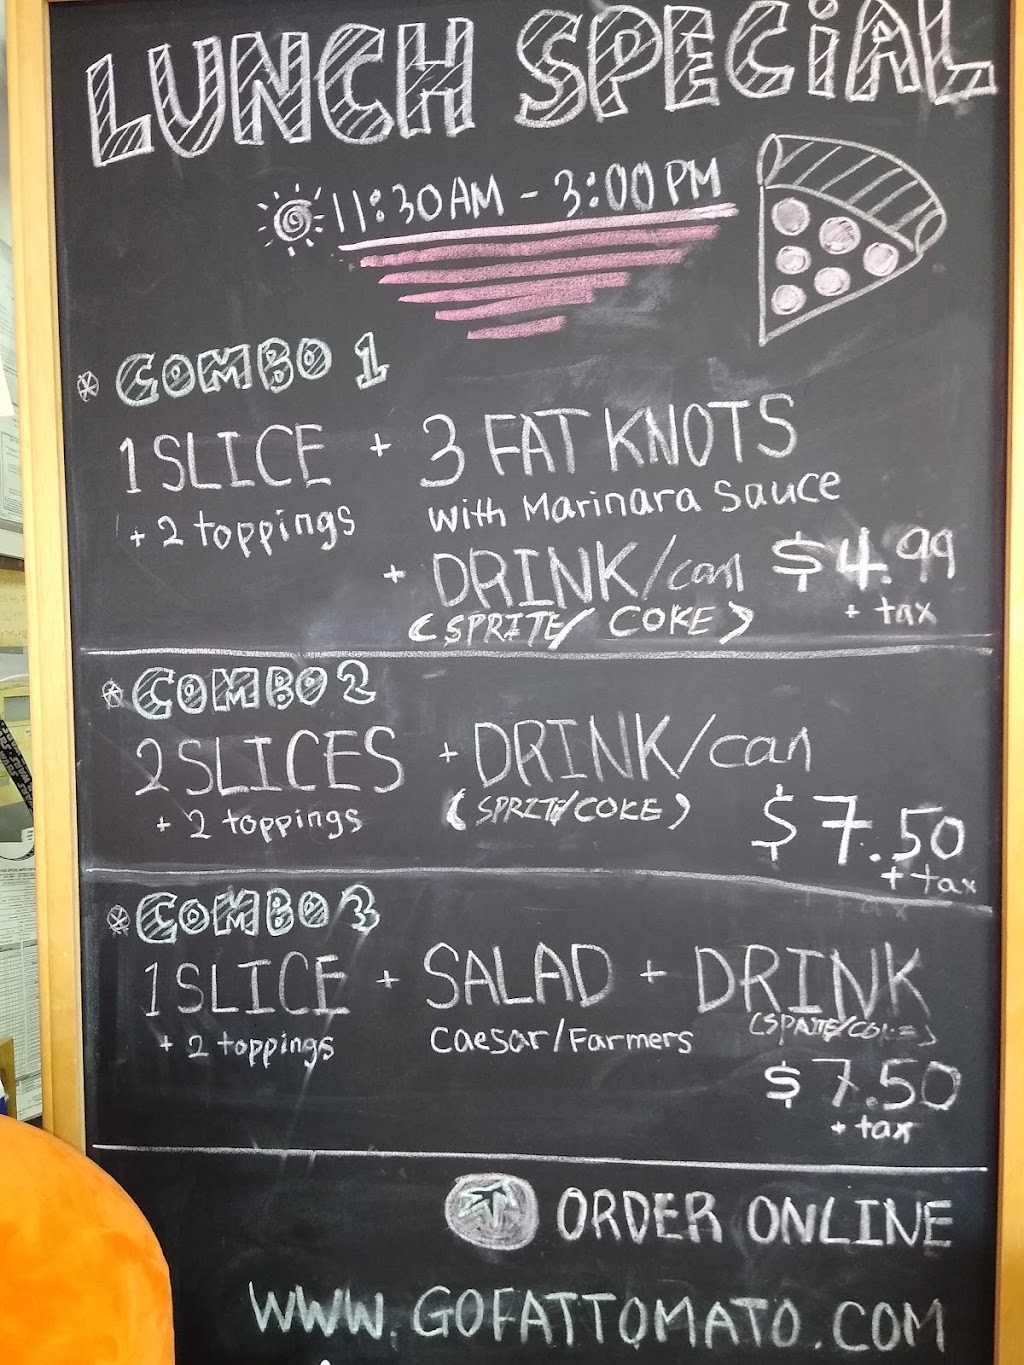 LUNCH SPECiAL
11:30AM - 3:00PM
COMBO 1
1 SLICE + 3 FAT KNOTS
+ 2 toppings with Marinara Sauce
+ DRINK/can $4.99
(SPRITE/ COKE) + tax
COMBO 2
2 SLICES + DRINK/can
+ 2 toppings (SPRITE/COKE)
$7.50
+ tax
COMBO 3
1 SLICE + SALAD + DRINK
+ 2 toppings Caesar/Farmers (SPRITE/COKE)
$7.50
+ tax
ORDER ONLINE
WWW.GOFATTOMATO.COM